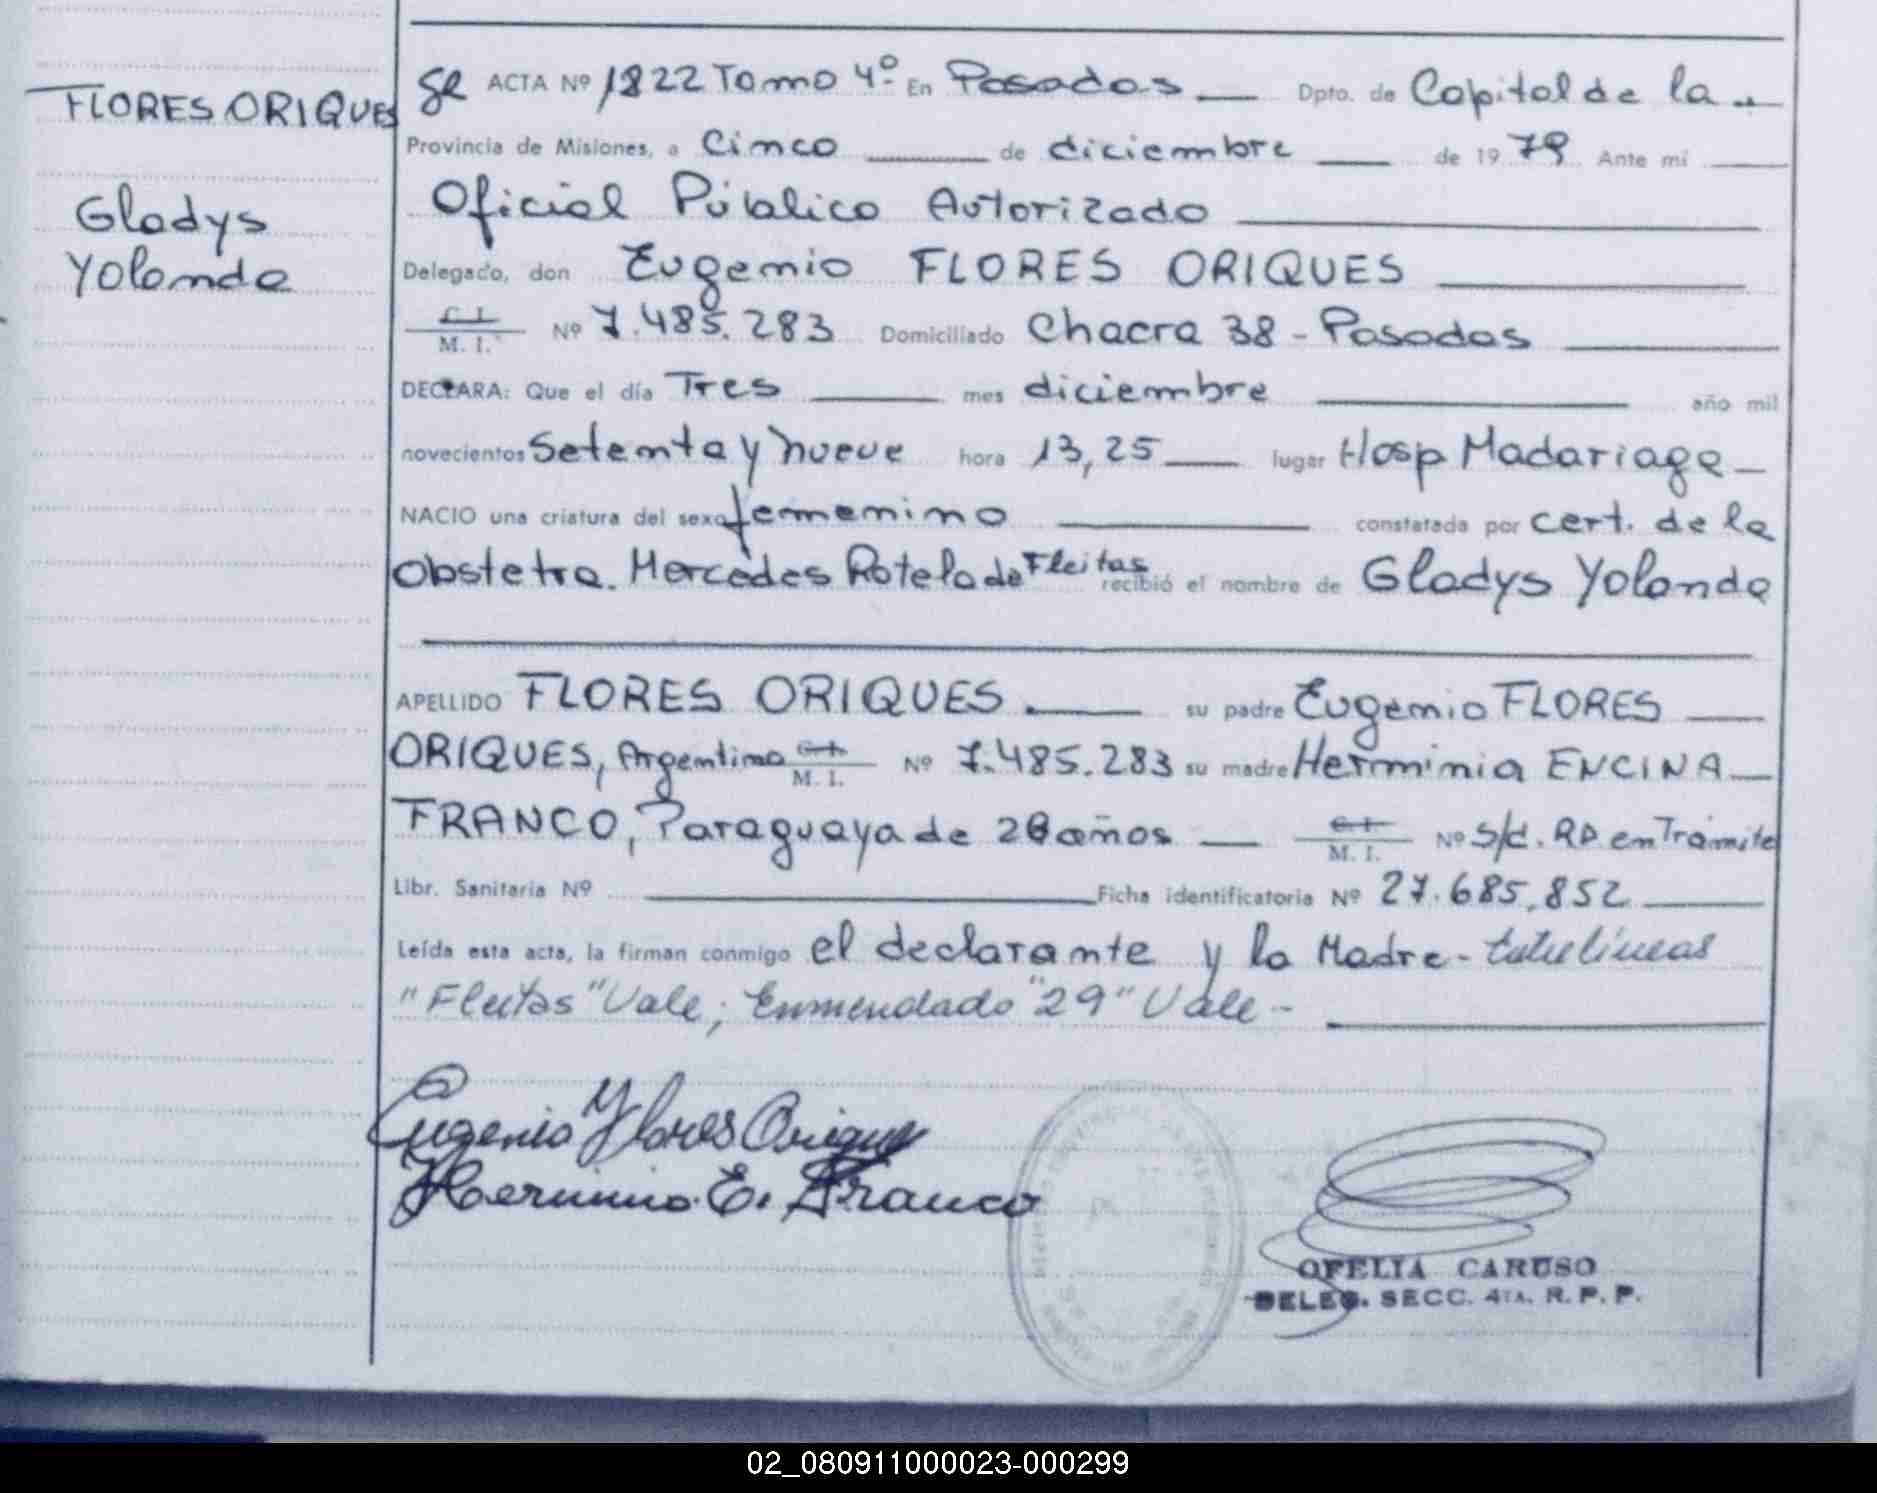 FLORES ORIQUES
Gladys
Yolanda
ACTA Nº 1822 Tomo 4º En Posadas Dpto. de Capital de la
Provincia de Misiones, a Cinco de diciembre de 1979 Ante mi
Oficial Público Autorizado
Delegado, don Eugenio FLORES ORIQUES
C.I. M. I. Nº 7.485.283 Domiciliado Chacra 38 - Posadas
DECLARA: Que el día Tres mes diciembre año mil
novecientos Setenta y nueve hora 13,25 lugar Hosp Madariaga
NACIO una criatura del sexo femenino constatada por cert. de la
Obstetra. Mercedes Rotela de Fleitas recibió el nombre de Gladys Yolanda
APELLIDO FLORES ORIQUES su padre Eugenio FLORES
ORIQUES, Argentino C.I. M. I. Nº 7.485.283 su madre Herminia ENCINA
FRANCO, Paraguaya de años C.I. M. I. Nº S/d. RD en Trámite
Libr. Sanitaria Nº Ficha identificatoria Nº 27.685,852
Leída esta acta, la firman conmigo el declarante y la Madre - Entrelíneas
"Fleitas" Vale; Enmendado "29" Vale -
Eugenio Flores Oriques
Herminia E. Franco
OFELIA CARUSO
DELEG. SECC. 4TA. R. P. P.
02_080911000023-000299